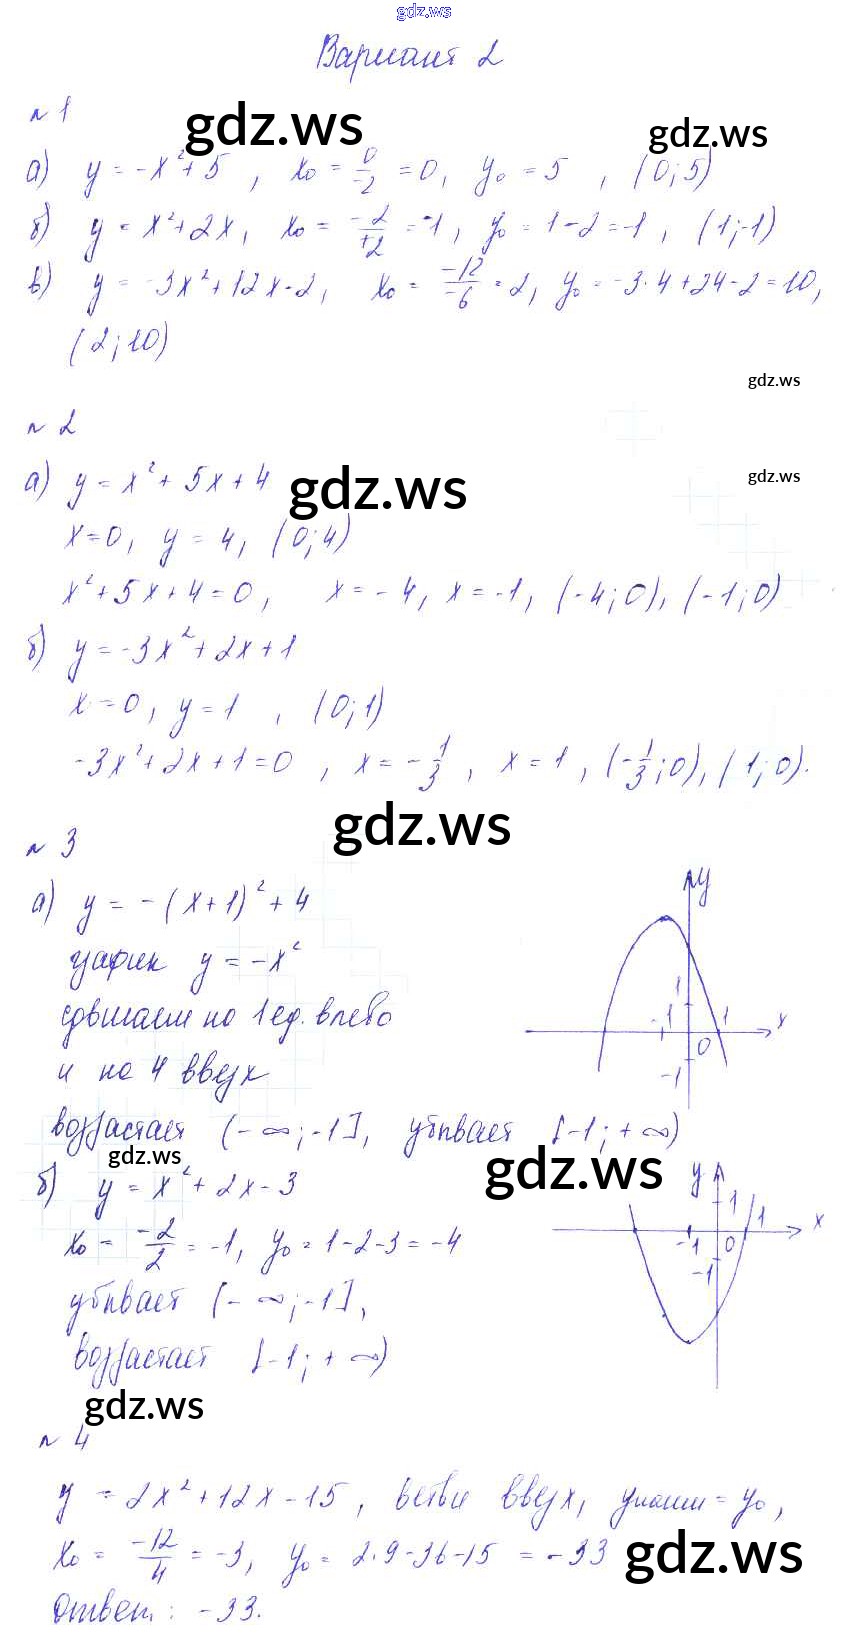 gdz.ws
Вариант 2
n 1
gdz.ws
gdz.ws
а) y = -x² + 5 , x₀ = 0/-2 = 0, y₀ = 5 , (0;5)
б) y = x² + 2x, x₀ = -2/+2 = -1, y₀ = 1-2 = -1, (1;-1)
в) y = -3x² + 12x - 2, x₀ = -12/-6 = 2, y₀ = -3·4+24-2=10,
(2;10)
gdz.ws
n 2
а) y = x² + 5x + 4
gdz.ws
gdz.ws
x=0, y = 4, (0;4)
x² + 5x + 4 = 0, x = -4, x = -1, (-4;0), (-1;0)
б) y = -3x² + 2x + 1
x = 0, y = 1 , (0;1)
-3x² + 2x + 1 = 0 , x = -1/3 , x = 1, (-1/3;0), (1;0).
gdz.ws
n 3
а) y = -(x+1)² + 4
график y = -x²
сдвигаем на 1 ед. влево
и на 4 вверх
y
1
-1 1 x
0
-1
возрастает (-∞;-1], убывает [-1;+∞)
gdz.ws
gdz.ws
б) y = x² + 2x - 3
x₀ = -2/2 = -1, y₀ = 1-2-3 = -4
убывает (-∞;-1],
возрастает [-1;+∞)
y
1 1 x
-1 0
-1
gdz.ws
n 4
y = 2x² + 12x - 15 , ветви вверх, yнаим = y₀,
x₀ = -12/4 = -3, y₀ = 2·9-36-15 = -33
gdz.ws
Ответ: -33.